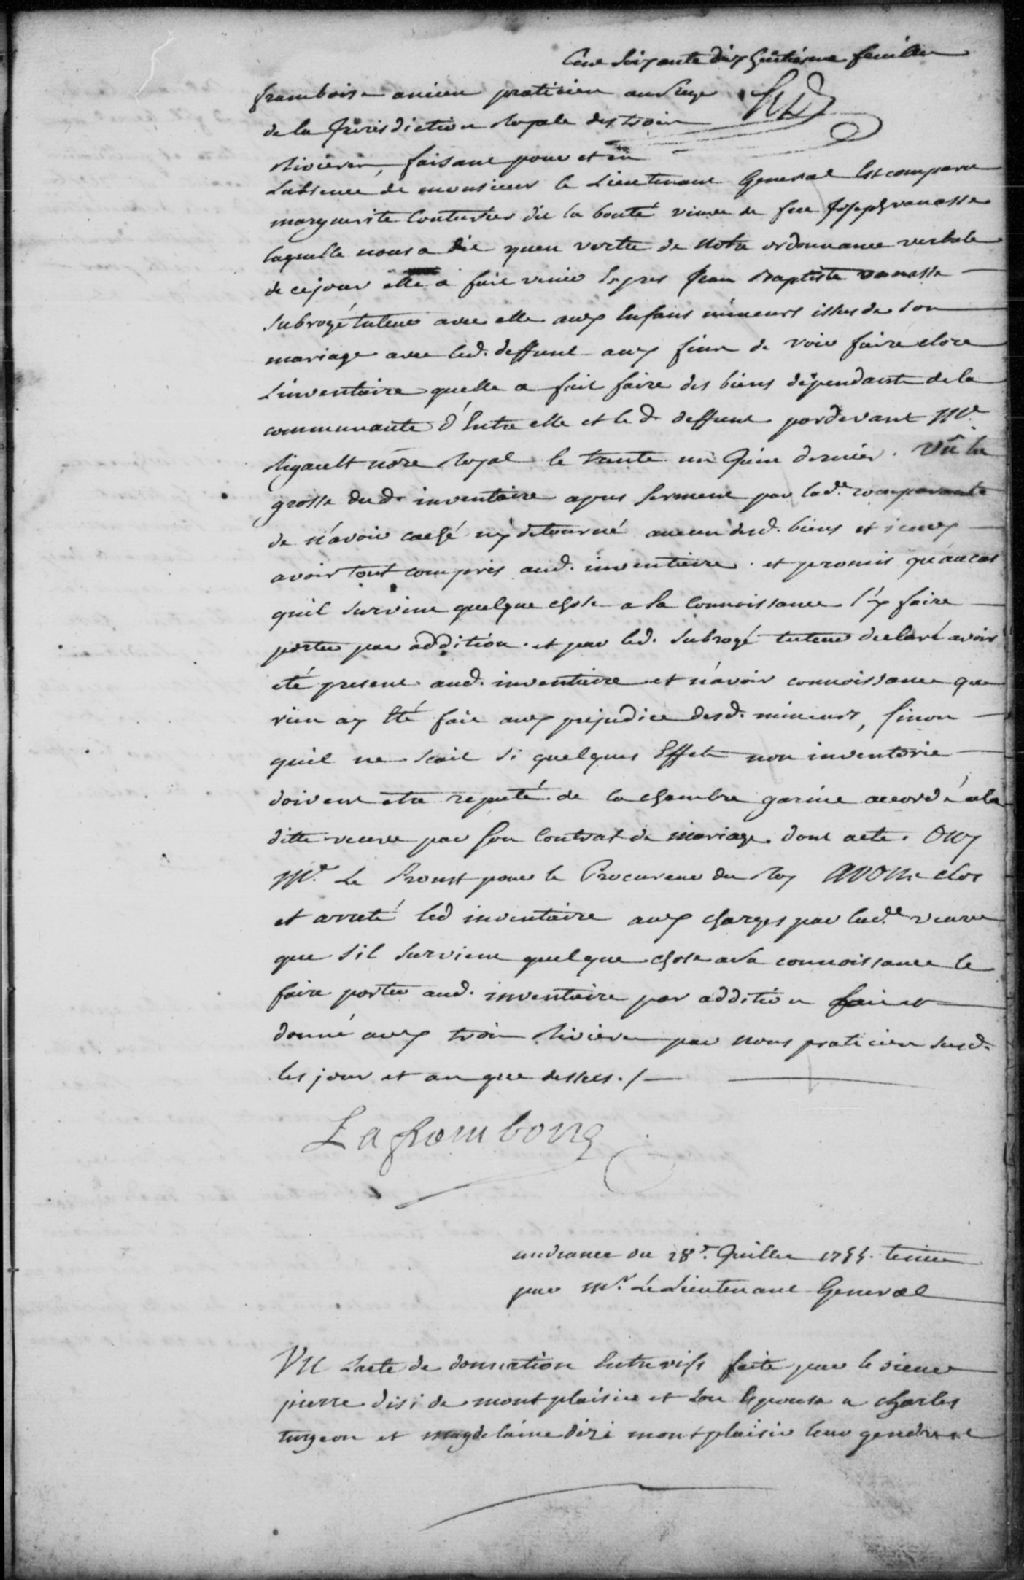 Cent soixante dix huitieme feuillet
framboise ancien praticien au siege
de la Jurisdiction Royale des trois
Rivieres, faisant pour et en
Labsence de monsieur le Lieutenant General Est comparu
marguerite Couturier dit la bonté veuve de feu Joseph vanasse
laquelle nous a dit quen vertu de notre ordonnance verbale
de ce jour elle a fait venir le Jean Baptiste vanasse
Subrogé tuteur avec elle aux Enfans mineurs issus de son
mariage avec led. deffunt aux fins de voir faire clore
Linventaire quelle a fait faire des biens dépendants de la
communauté d'Entre elle et led. deffunt pardevant Me.
Rigault nore Royal le trente un Juin dernier. Vû la
grosse dud. inventaire apres serment par lade. comparante
de n'avoir caché ny détourné aucun desd. biens et iceux
avoir tout compris aud. inventaire. et promis qu'au cas
quil survint quelque chose a sa connoissance l'y faire
porter par addition. et par led. subrogé tuteur declaré avoir
eté present aud. inventaire et n'avoir connoissance que
rien ay Eté fait aux prejudice desd. mineurs, sinon
quil ne scait si quelques Effets non inventorié
doivent etre reputé de la chambre garnie accordé a la
ditte veuve par son Contrat de mariage. dont acte. Ouy
Mr. Le Proust pour le Procureur du Roy avons clos
et arreté led inventaire aux charges par lade. veuve
que s'il survient quelque chose a sa connoissance le
faire porter aud. inventaire par addition fait et
donné aux trois Rivieres par nous praticien susd.
les jour et an que dessus. /
Laframboise
audiance du 28e. Juillet 1755. tenue
par Mr. Le Lieutenant General
VU Lacte de donnation Entrevifs faite par le sieur
pierre disi de montplaisir et son Epouse a charles
turgeon et magdelaine dizi montplaisir leur gendre et